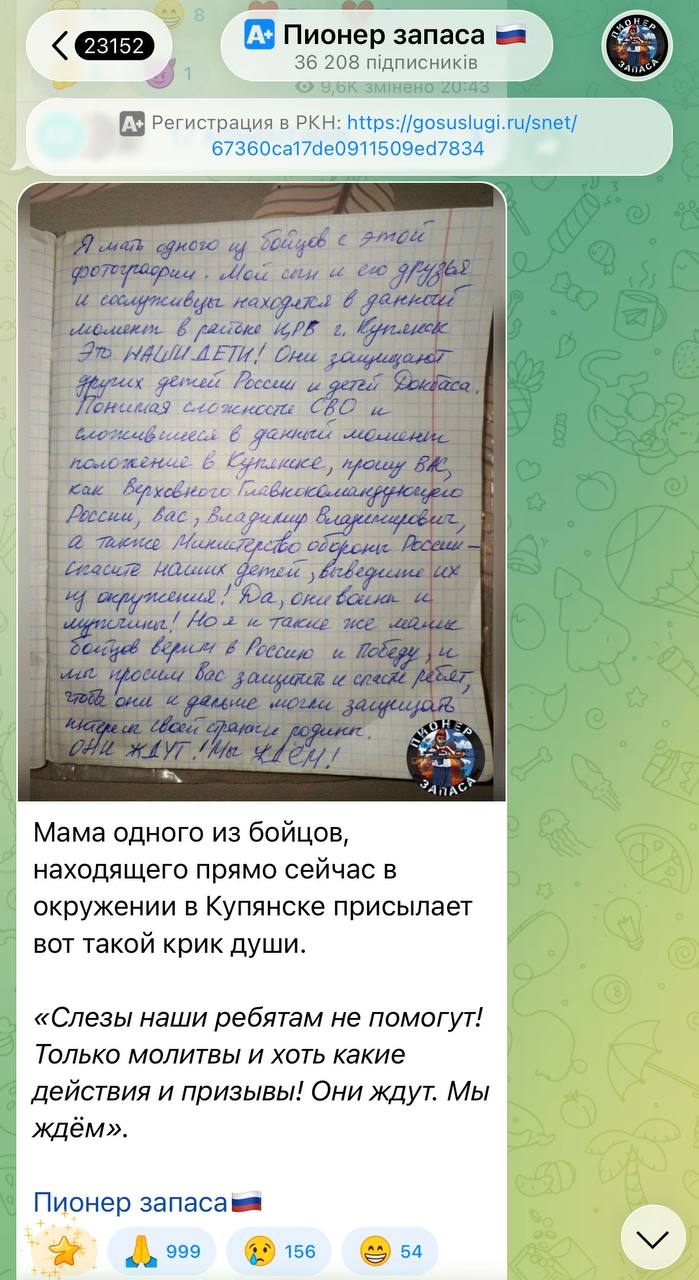 23152
A+ Пионер запаса
36 208 підписників
ПИОНЕР ЗАПАСА
8
1
9,6K змінено 20:43
A+ Регистрация в РКН: https://gosuslugi.ru/snet/
67360ca17de0911509ed7834
Я мать одного из бойцов с этой
фотографии. Мой сын и его друзья
и сослуживцы находятся в данный
момент в районе ЦРБ г. Купянск
Это НАШИ ДЕТИ! Они защищают
других детей России и детей Донбаса.
Понимая сложность СВО и
сложившееся в данный момент
положение в Купянске, прошу ВАС,
как Верховного Главнокомандующего
России, Вас, Владимир Владимирович,
а также Министерство обороны России –
спасите наших детей, выведите их
из окружения! Да, они воины и
мужчины! Но я и такие же мамы
бойцов верим в Россию и Победу, и
мы просим Вас защитить и спасти ребят,
чтобы они и дальше могли защищать
интересы своей страны и родины.
ОНИ ЖДУТ! Мы ЖДЁМ!
ПИОНЕР ЗАПАСА
Мама одного из бойцов,
находящего прямо сейчас в
окружении в Купянске присылает
вот такой крик души.
«Слезы наши ребятам не помогут!
Только молитвы и хоть какие
действия и призывы! Они ждут. Мы
ждём».
Пионер запаса
999
156
54